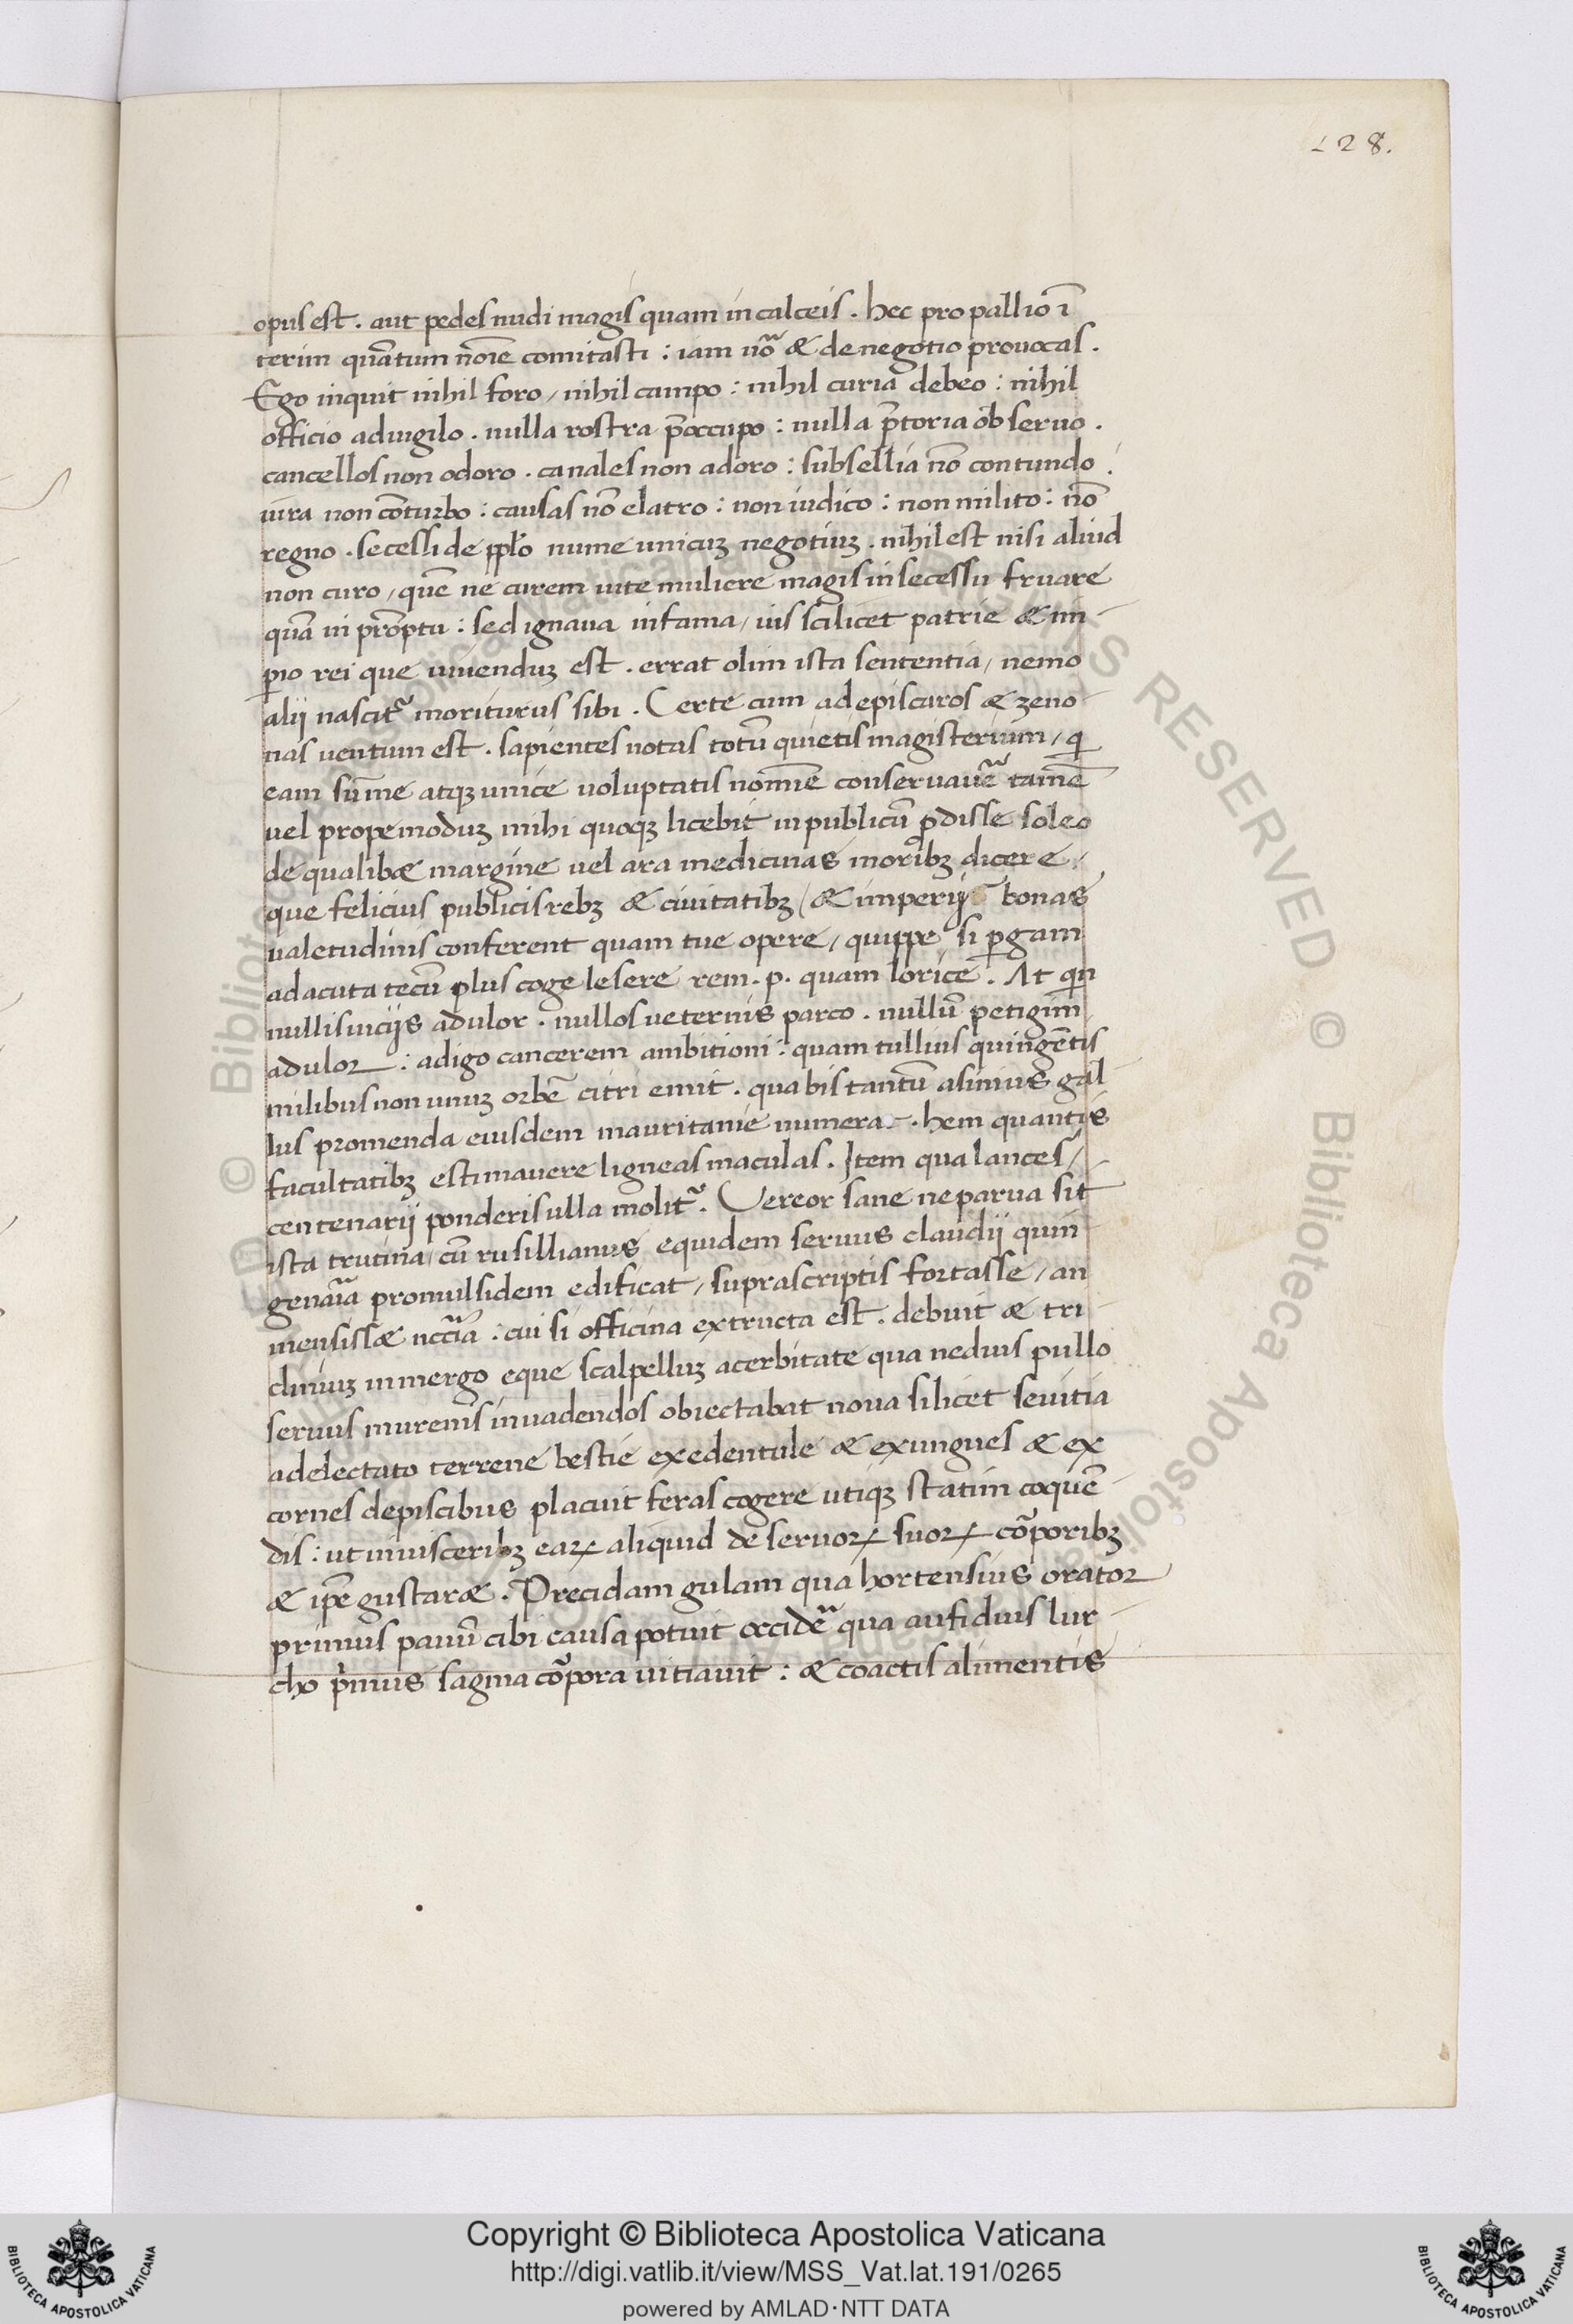 128.
opus est . aut pedes nudi magis quam in calceis . hec pro pallio ī
terim quātum nōie comitasti : iam uō & de negotio prouocas .
Ego inquit nihil foro / nihil campo : nihil curia debeo : nihil
officio aduigilo . nulla rostra p̄occupo : nulla p̄toria obseruo .
cancellos non odoro . canales non adoro : subsellia nō contundo .
iura non cōturbo : causas nō elatro : non iudico : non milito : nō
regno . secessi de pplo nume unicuꝫ negotiuꝫ . nihil est nisi aliud
non curo / quē ne curem uite muliere magis in secessu fruare
quā in prōptu : sed ignaua infama / uis scilicet patrie & im
ꝑio rei que uiuenduꝫ est . errat olim ista sententia / nemo
alij nascit᷑ moriturus sibi . Certe cum ad episcuros & zeno
nas uentum est . sapientes notas totū quietis magisterium / qi
eam sūme atqꝫ unice uoluptatis nomīe conseruauē tamē
uel propemoduꝫ mihi quoqꝫ licebit in publicū ꝓdisse soleo
de qualib& margine uel ara medicinas moribꝫ dicere /
que felicius publicis rebꝫ & ciuitatibꝫ / & imperijs bonas
ualetudinis conferent quam tue opere / quippe si ꝑgam
ad acuta tecū plus coge lesere rem . p . quam lorice . At qn
nullis uicijs adulor . nullos ueternis parco . nullū petigini
adulor : adigo cancerem ambitioni : quam tullius quingētis
milibus non unuꝫ orbē citri emit . qua bis tantū asinius gal
lus promenda eiusdem mauritanie numera . hem quantis
facultatibꝫ estimauere ligneas maculas . Item qua lances /
centenarij ponderis ulla molit᷑ . Uereor sane ne parua sit
ista trutina / cū rusillianus equidem seruus claudij quin
genāia promulsidem edificat / suprascriptis fortasse / an
mensiss& nccīa : cui si officina extructa est . debuit & tri
cliniuꝫ inmergo eque scalpelluꝫ acerbitate qua nedius pullo
seruus murenis inuadendos obiectabat noua silicet seuitia
adelectato terrene bestie exedentule & exungues & ex
cornes de piscibus placuit feras cogere utiqꝫ statim coquē
dis : ut in uisceribꝫ eaꝝ aliquid de seruoꝝ suoꝝ cōporibꝫ
& ipe gustar& . Precidam gulam qua hortensius orator
primus pauū cibi causa potuit occidē qua aufidius lur
cho p̄mus sagina cōpora uitiauit : & coactis alimentis
Copyright © Biblioteca Apostolica Vaticana
http://digi.vatlib.it/view/MSS_Vat.lat.191/0265
powered by AMLAD·NTT DATA